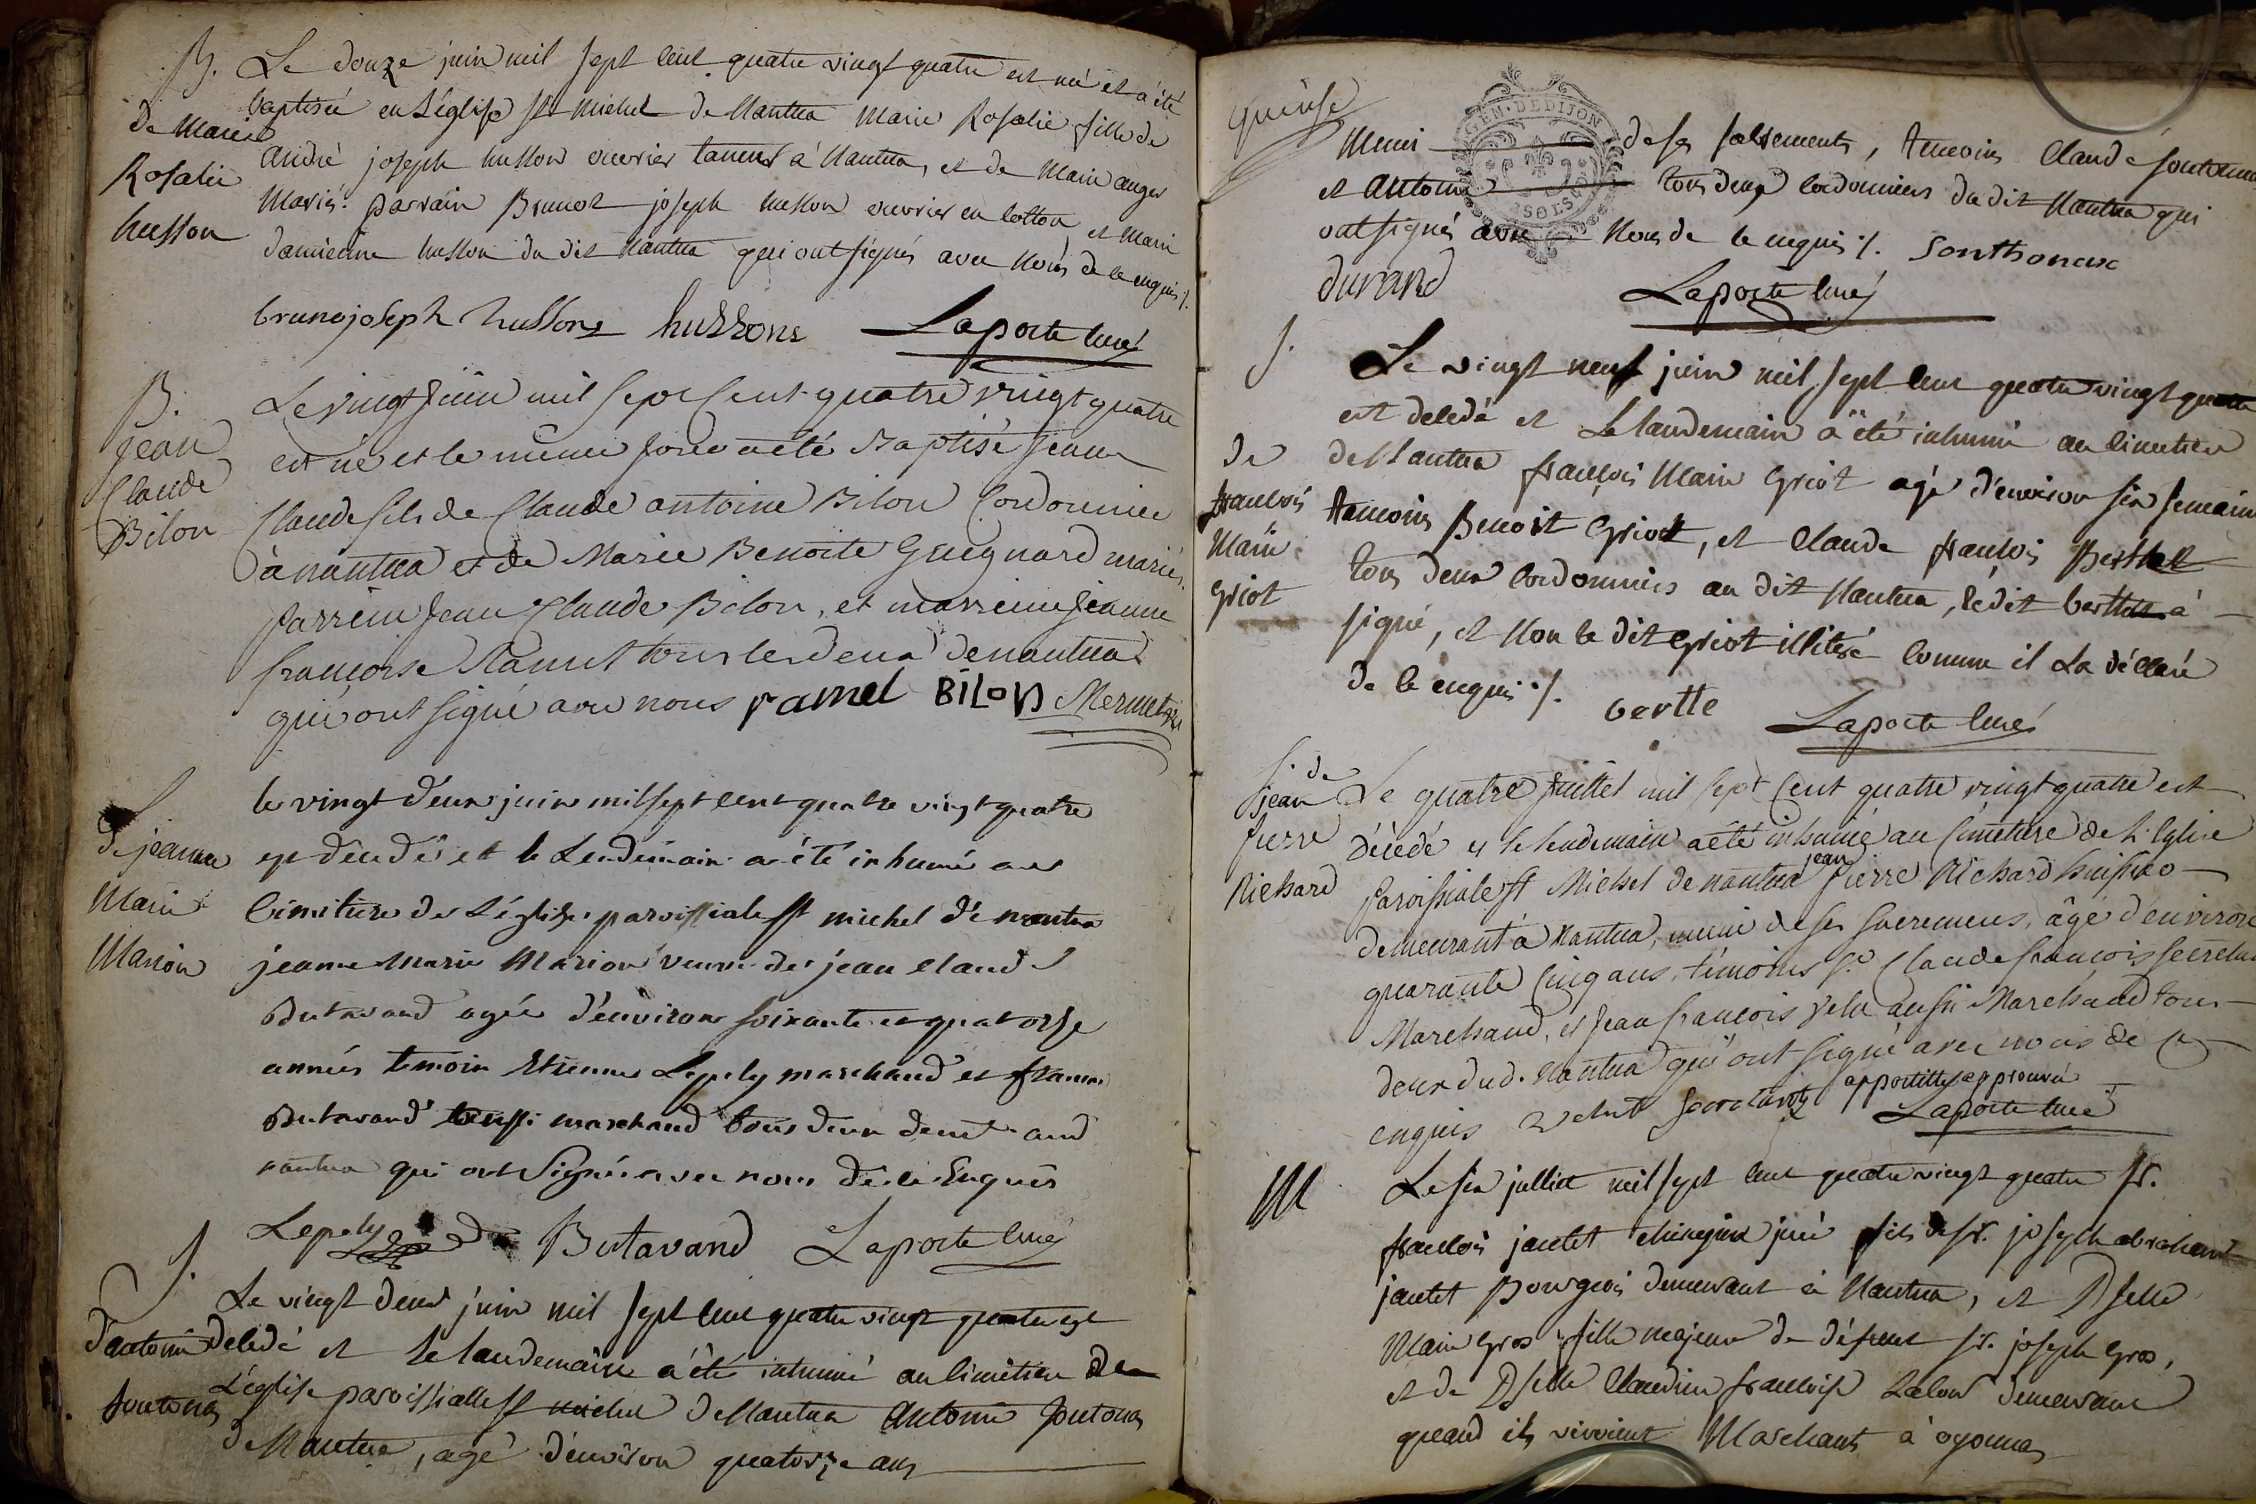 B. Le douze juin mil sept cent quatre vingt quatre est né et a été
baptisée en L'église st michel de Nantua marie Rosalie fille de
de Marie
andré joseph husson ouvrier taneur à Nantua, et de marie anger
Rosalie
Mariés. parrain Brunot joseph husson ouvrier en cotton et marie
husson
damienne husson du dit Nantua qui ont signés avec Nous de ce enquis /.
bruno joseph hussons hussons Laporte curé
B. Le vingt Juin mil Sept Cent quatre vingt quatre
Jean
est né et le même Jour a été Baptisé Jean
Claude
Claude fils de Claude antoine Bilon Cordonnier
Bilon
à nantua et de Marie Benoite Guignard mariés,
parrein Jean Claude Bilon, et marreine Jeanne
françoise Ramet tous les deux de nantua
qui ont signé avec nous ramel BILON Mermet
le vingt deux juin mil sept cent quatre vingt quatre
de jeanne
est décédé et le Lendemain a été inhumé au
Marie
Cimitiere de L'église paroissiale st michel de nantua
Marion
jeanne marie Marion veuve de jean claude
Butavand agée d'environ soixante et quatorze
années temoin Etienne Lepely marchand et
Butavand aussi marchand tous deux
nantua qui ont Signé avec nous de ce Enquis
Lepely Butavand Laporte curé
S. Le vingt deux juin mil sept cent quatre vingt quatre est
d'antoine
decedé et le landemain a été inhumé au cimitiere de
L'église paroissialle st michel de Nantua antoine soutonas
soutonas
de Nantua, agé d'environ quatorze ans
Muni de ses sacrements, temoins Claude
et antoine tous deux cordonniers du dit Nantua qui
ont signés avec Nous de ce enquis /. Sonthonax
durand Laporte curé
S. Le vingt neuf juin mil sept cent quatre vingt quatre
est decedé et Le landemain a été inhumé au cimitiere
de
de Nantua françois Marie Griot agé d'environ six semaines
françois
temoins Benoit Griot, et Claude françois Berthet
Marie
tous deux cordonniers au dit Nantua, le dit berthet à
Griot
signé, et Non le dit Griot illitéré comme il La déclaré
de ce enquis /. bertte Laporte curé
S. de
jean
Le quatre Juillet mil sept Cent quatre vingt quatre est
pierre
décédé et le lendemain a été inhumé au Cimetiere de L'Eglise
jean
Richard
Paroissiale st Michel de nantua pierre Richard huissier
demeurant à Nantua, muni de ses sacremens, âgé d'environ
quarante Cinq ans, témoins sr Claude françois Secretan
Marchand, et Jean françois Velu aussi Marchand tous
deux dud. Nantua qui ont signé avec nous de ce
appostille approuvée
enquis Velut Secretant Laporte curé
M Le six julliet mil sept cent quatre vingt quatre sr.
françois jantet chirurgien juré fils de sr. joseph abraham
jantet Bourgeois demeurant à Nantua, et Dselle
Marie Gros fille majeure de défunt sr. joseph Gros,
et de Dselle Claudine françoise demeurant
quand ils vivoient Marchants à oyonnax